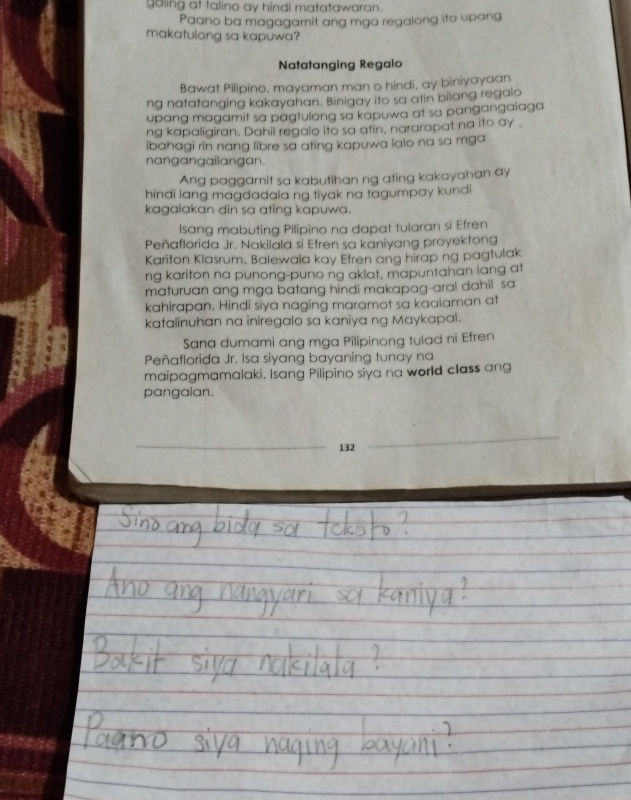 galing at talino ay hindi matatawaran.
Paano ba magagamit ang mga regalong ito upang
makatulong sa kapuwa?
Natatanging Regalo
Bawat Pilipino, mayaman man o hindi, ay biniyayaan
ng natatanging kakayahan. Binigay ito sa atin bilang regalo
upang magamit sa pagtulong sa kapuwa at sa pangangalaga
ng kapaligiran. Dahil regalo ito sa atin, nararapat na ito ay
ibahagi rin nang libre sa ating kapuwa lalo na sa mga
nangangailangan.
Ang paggamit sa kabutihan ng ating kakayahan ay
hindi lang magdadala ng tiyak na tagumpay kundi
kagalakan din sa ating kapuwa.
Isang mabuting Pilipino na dapat tularan si Efren
Peñaflorida Jr. Nakilala si Efren sa kaniyang proyektong
Kariton Klasrum. Balewala kay Efren ang hirap ng pagtulak
ng kariton na punong-puno ng aklat, mapuntahan lang at
maturuan ang mga batang hindi makapag-aral dahil sa
kahirapan. Hindi siya naging maramot sa kaalaman at
katalinuhan na iniregalo sa kaniya ng Maykapal.
Sana dumami ang mga Pilipinong tulad ni Efren
Peñaflorida Jr. Isa siyang bayaning tunay na
maipagmamalaki. Isang Pilipino siya na world class ang
pangalan.
132
Sino ang bida sa teksto?
Ano ang nangyari sa kaniya?
Bakit siya nakilala?
Paano siya naging bayani?